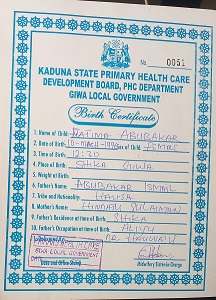 No. 0051
KADUNA STATE PRIMARY HEALTH CARE
DEVELOPMENT BOARD, PHC DEPARTMENT
GIWA LOCAL GOVERNMENT
Birth Certificate
1. Name of Child: HALIMA ABUBAKAR
2. Date of Birth: 10-MARCH-1990 Sex FEMALE
3. Time of Birth: 12:30
4. Place of Birth: SHIKA GIWA
5. Weight of Birth:
6. Father's Name: ABUBAKAR ISMAIL
7. Tribe and Nationality: HAUSA
8. Mother's Name: SULAIMAN
9. Father's Residence at time of Birth: SHIKA
10. Father's Occupation at time of Birth: ALIYU
GIWA LOCAL GOVERNMENT
Midwifery Sister in Charge